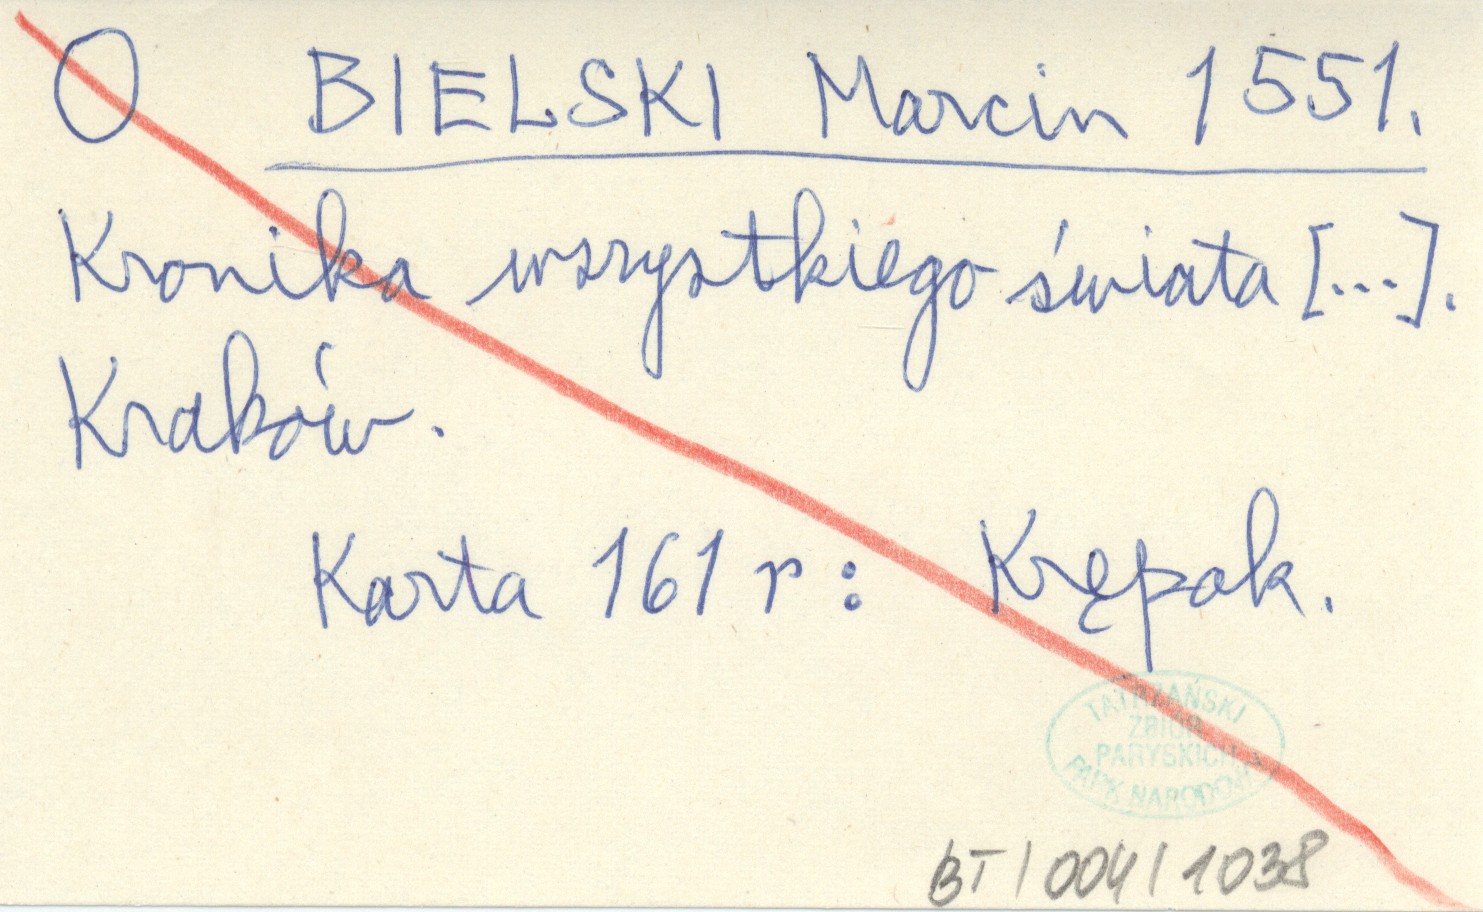 O BIELSKI Marcin 1551.
Kronika wszystkiego świata [...].
Kraków.
Karta 161 r : Krępak.
TATRZAŃSKI
ZBIÓR
PARYSKICH
PARK NARODOWY
BT/004/1038